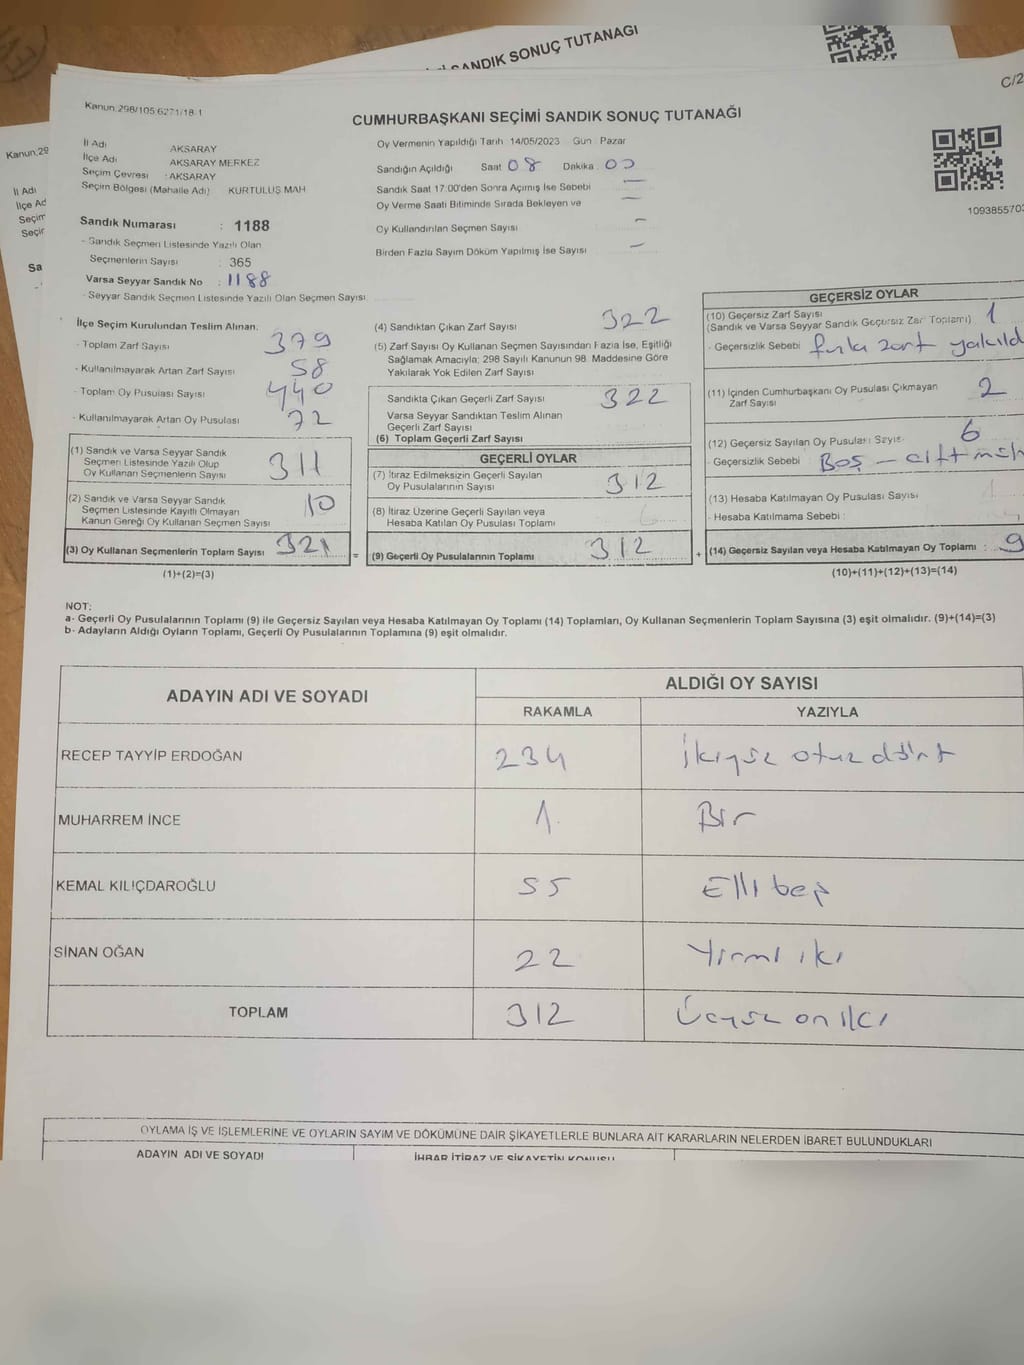 SANDIK SONUÇ TUTANAĞI
C/2
Kanun:298/105;6271/18-1
CUMHURBAŞKANI SEÇİMİ SANDIK SONUÇ TUTANAĞI
Kanun:29
İl Adı
İlçe Ad
Seçim
Seçir
Sa
İl Adı AKSARAY
İlçe Adı AKSARAY MERKEZ
Seçim Çevresi : AKSARAY
Seçim Bölgesi (Mahalle Adı) KURTULUŞ MAH
Sandık Numarası : 1188
- Sandık Seçmen Listesinde Yazılı Olan
Seçmenlerin Sayısı : 365
Varsa Seyyar Sandık No : 1188
- Seyyar Sandık Seçmen Listesinde Yazılı Olan Seçmen Sayısı
Oy Vermenin Yapıldığı Tarih : 14/05/2023 Gün : Pazar
Sandığın Açıldığı Saat 08 Dakika : 00
Sandık Saat 17:00'den Sonra Açımış İse Sebebi —
Oy Verme Saati Bitiminde Sırada Bekleyen ve —
Oy Kullandırılan Seçmen Sayısı —
Birden Fazla Sayım Döküm Yapılmış İse Sayısı —
109385570
İlçe Seçim Kurulundan Teslim Alınan:
- Toplam Zarf Sayısı 379
- Kullanılmayarak Artan Zarf Sayısı 58
- Toplam Oy Pusulası Sayısı 440
- Kullanılmayarak Artan Oy Pusulası 72
(1) Sandık ve Varsa Seyyar Sandık
Seçmen Listesinde Yazılı Olup
Oy Kullanan Seçmenlerin Sayısı 311
(2) Sandık ve Varsa Seyyar Sandık
Seçmen Listesinde Kayıtlı Olmayan
Kanun Gereği Oy Kullanan Seçmen Sayısı 10
(3) Oy Kullanan Seçmenlerin Toplam Sayısı 321
(1)+(2)=(3)
(4) Sandıktan Çıkan Zarf Sayısı 322
(5) Zarf Sayısı Oy Kullanan Seçmen Sayısından Fazla İse, Eşitliği
Sağlamak Amacıyla; 298 Sayılı Kanunun 98. Maddesine Göre
Yakılarak Yok Edilen Zarf Sayısı
Sandıkta Çıkan Geçerli Zarf Sayısı 322
Varsa Seyyar Sandıktan Teslim Alınan
Geçerli Zarf Sayısı
(6) Toplam Geçerli Zarf Sayısı
GEÇERLİ OYLAR
(7) İtiraz Edilmeksizin Geçerli Sayılan
Oy Pusulalarının Sayısı 312
(8) İtiraz Üzerine Geçerli Sayılan veya
Hesaba Katılan Oy Pusulası Toplamı
= (9) Geçerli Oy Pusulalarının Toplamı 312
GEÇERSİZ OYLAR
(10) Geçersiz Zarf Sayısı
(Sandık ve Varsa Seyyar Sandık Geçersiz Zarf Toplamı) 1
- Geçersizlik Sebebi : fazla zarf yakıld
(11) İçinden Cumhurbaşkanı Oy Pusulası Çıkmayan
Zarf Sayısı 2
(12) Geçersiz Sayılan Oy Pusulası Sayısı 6
- Geçersizlik Sebebi : Boş - çift müh
(13) Hesaba Katılmayan Oy Pusulası Sayısı
- Hesaba Katılmama Sebebi :
+ (14) Geçersiz Sayılan veya Hesaba Katılmayan Oy Toplamı : 9
(10)+(11)+(12)+(13)=(14)
NOT:
a- Geçerli Oy Pusulalarının Toplamı (9) ile Geçersiz Sayılan veya Hesaba Katılmayan Oy Toplamı (14) Toplamları, Oy Kullanan Seçmenlerin Toplam Sayısına (3) eşit olmalıdır. (9)+(14)=(3)
b- Adayların Aldığı Oyların Toplamı, Geçerli Oy Pusulalarının Toplamına (9) eşit olmalıdır.
ADAYIN ADI VE SOYADI ALDIĞI OY SAYISI
RAKAMLA YAZIYLA
RECEP TAYYİP ERDOĞAN 234 İkiyüz otuz dört
MUHARREM İNCE 1 Bir
KEMAL KILIÇDAROĞLU 55 Elli beş
SİNAN OĞAN 22 Yirmi iki
TOPLAM 312 Üçyüz on iki
OYLAMA İŞ VE İŞLEMLERİNE VE OYLARIN SAYIM VE DÖKÜMÜNE DAİR ŞİKAYETLERLE BUNLARA AİT KARARLARIN NELERDEN İBARET BULUNDUKLARI
ADAYIN ADI VE SOYADI İHBAR İTİRAZ VE ŞİKAYETİN KONUSU